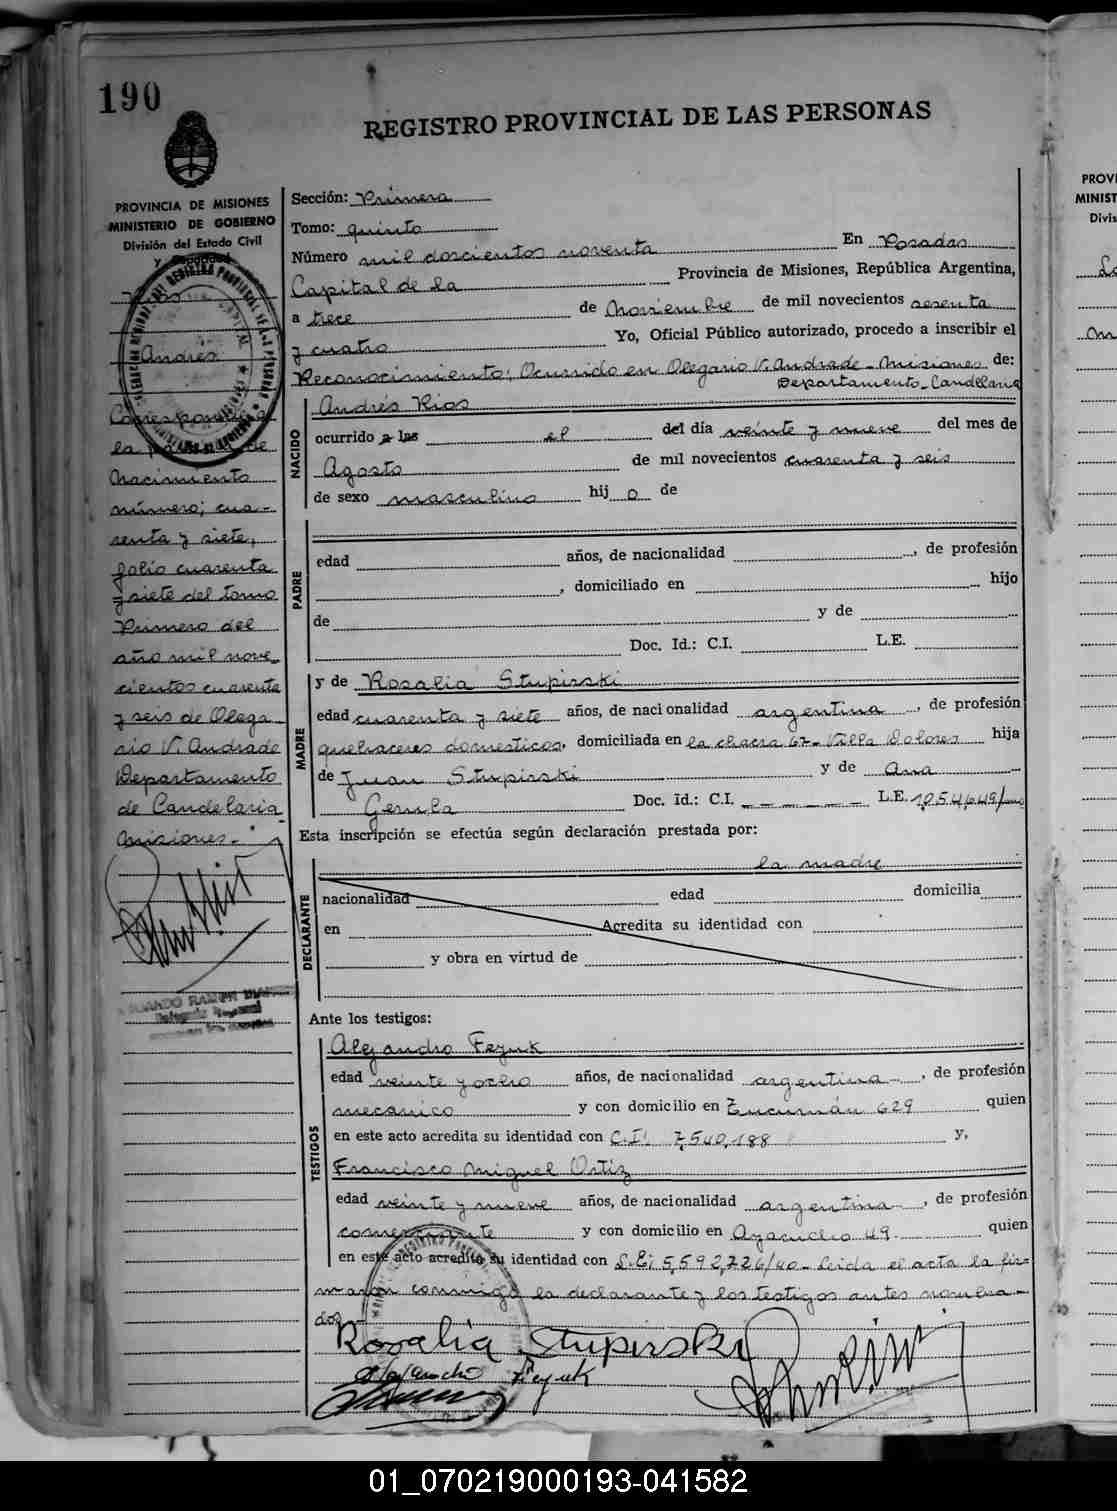 190
REGISTRO PROVINCIAL DE LAS PERSONAS
PROVINCIA DE MISIONES
MINISTERIO DE GOBIERNO
División del Estado Civil
y
Andrés
Corresponde a
la de
nacimiento
número; cua-
renta y siete,
folio cuarenta
y siete del tomo
Primero del
año mil nove-
cientos cuarenta
y seis de Olega-
rio V. Andrade
Departamento
de Candelaria
Misiones.-
Sección: Primera
Tomo: quinto
Número mil doscientos noventa En Posadas
Capital de la Provincia de Misiones, República Argentina,
a trece de Noviembre de mil novecientos sesenta
y cuatro Yo, Oficial Público autorizado, procedo a inscribir el
Reconocimiento; Ocurrido en Olegario V. Andrade - Misiones de:
Departamento - Candelaria
NACIDO
Andrés Rios
ocurrido a las el del día veinte y nueve del mes de
Agosto de mil novecientos cuarenta y seis
de sexo masculino hijo de
PADRE
edad años, de nacionalidad , de profesión
, domiciliado en hijo
de y de
Doc. Id.: C.I. L.E.
MADRE
y de Rosalia Stupirski
edad cuarenta y siete años, de nacionalidad argentina , de profesión
quehaceres domesticos, domiciliada en la chacra 67 - Villa Dolores hija
de Juan Stupirski y de Ana
Gerula Doc. Id.: C.I. — — — — — — L.E.
Esta inscripción se efectúa según declaración prestada por:
la madre
DECLARANTE
nacionalidad edad domicilia
en Acredita su identidad con
y obra en virtud de
Ante los testigos:
TESTIGOS
Alejandro Fezuk
edad veinte y ocho años, de nacionalidad argentina , de profesión
mecanico y con domicilio en Tucumán 629 quien
en este acto acredita su identidad con C.I. 7,540,188 y,
Francisco Miguel Ortiz
edad veinte y nueve años, de nacionalidad argentina , de profesión
comerciante y con domicilio en Ayacucho 49. quien
en este acto acredita su identidad con L.E; 5,592,726/40 - Leida el acta la fir-
maron conmigo la declarante y los testigos antes nombra-
dos.
Rosalia Stupirski
01_070219000193-041582